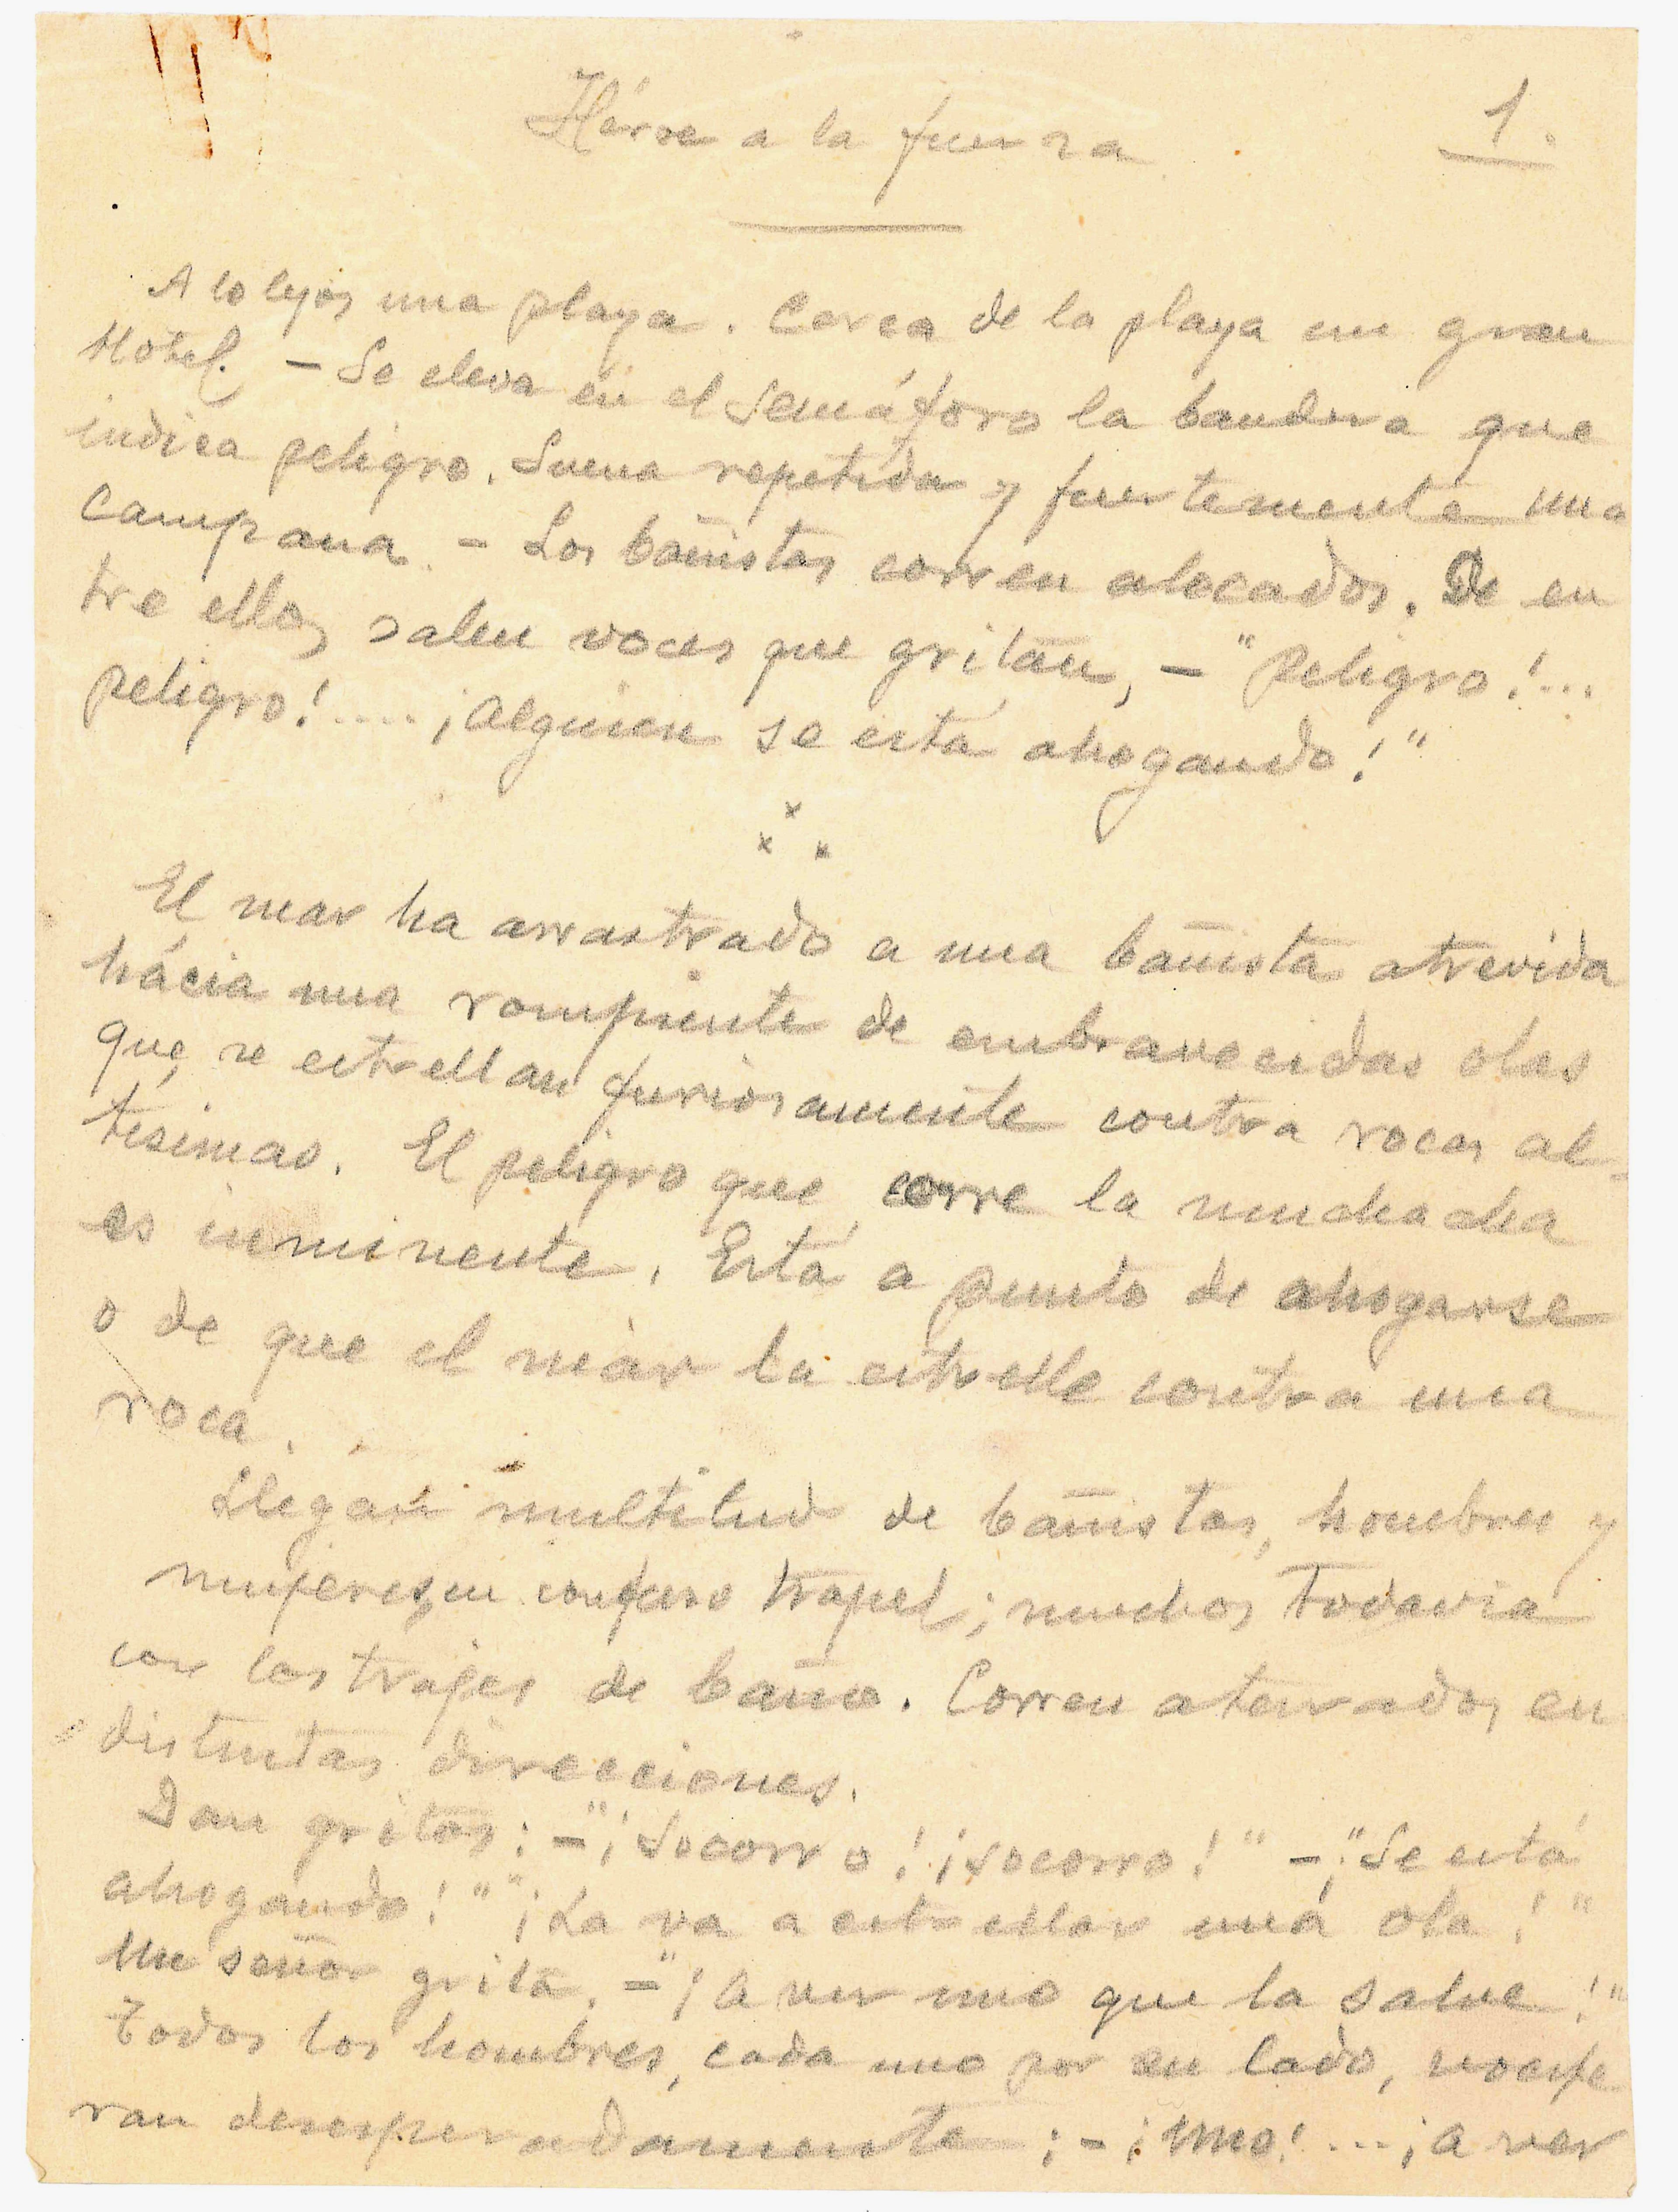 Héroe a la fuerza
1.
A lo lejos una playa. Cerca de la playa un gran
Hotel. - Se eleva en el Semáforo la bandera que
indica peligro. Suena repetida y fuertemente una
campana. - Los bañistas corren alocados. De en
tre ellos salen voces que gritan, - "Peligro!...
peligro!.... ¡Alguien se está ahogando!"
x x x
El mar ha arrastrado a una bañista atrevida
hácia una rompiente de embravecidas olas
que, se estrellan furiosamente contra rocas al-
tísimas. El peligro que corre la muchacha
es inminente. Está a punto de ahogarse
o de que el mar la estrelle contra una
roca.
Llegan multitud de bañistas, hombres y
mujeres, en confuso tropel; muchos todavía
con los trajes de baño. Corren aterrados en
distintas direcciones.
Dan gritos: - "¡Socorro! ¡socorro!" - "¡Se está
ahogando!" "¡La va a estrellar una ola!"
Un señor grita. - "¡A ver uno que la salve!"
Todos los hombres, cada uno por su lado, vocife
ran desesperadamente: - ¡Uno!... ¡A ver